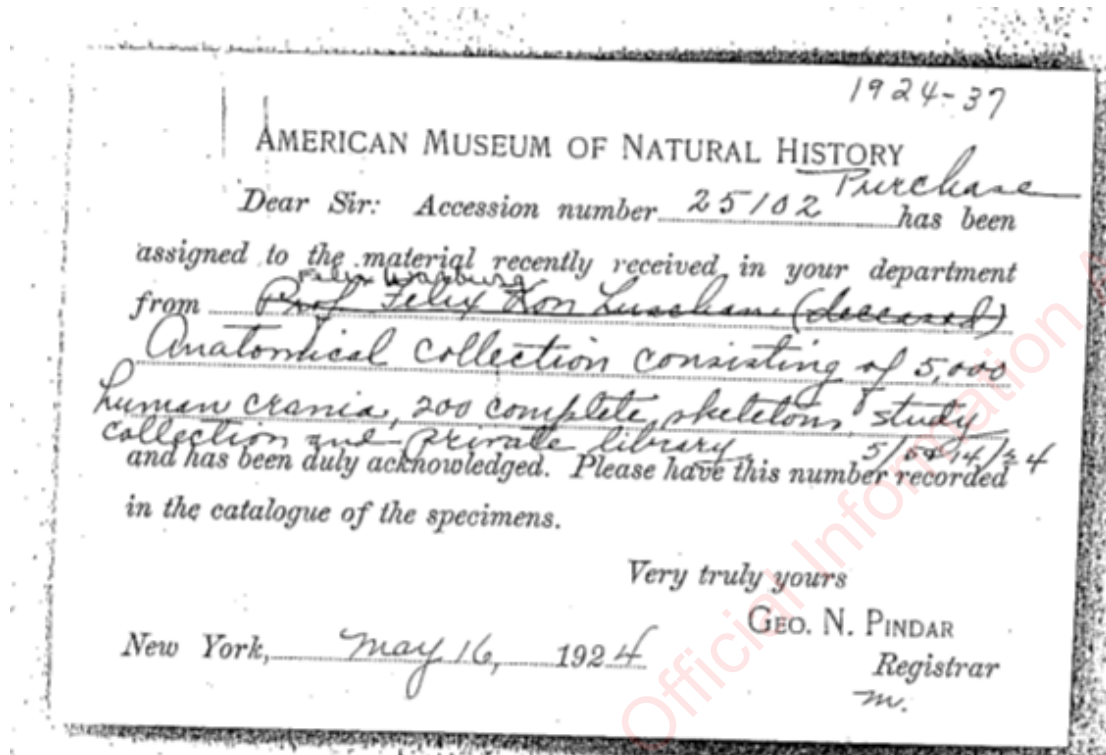 1924-37
AMERICAN MUSEUM OF NATURAL HISTORY
Purchase
Dear Sir: Accession number 25102 has been
assigned to the material recently received in your department
Felix Warburg
from Prof Felix Von Luschan (deceased)
Anatomical collection consisting of 5,000
human crania, 200 complete skeletons, study
collection and private library
5/14/24
and has been duly acknowledged. Please have this number recorded
in the catalogue of the specimens.
Very truly yours
GEO. N. PINDAR
New York, May 16, 1924
Registrar
m.
Official Information